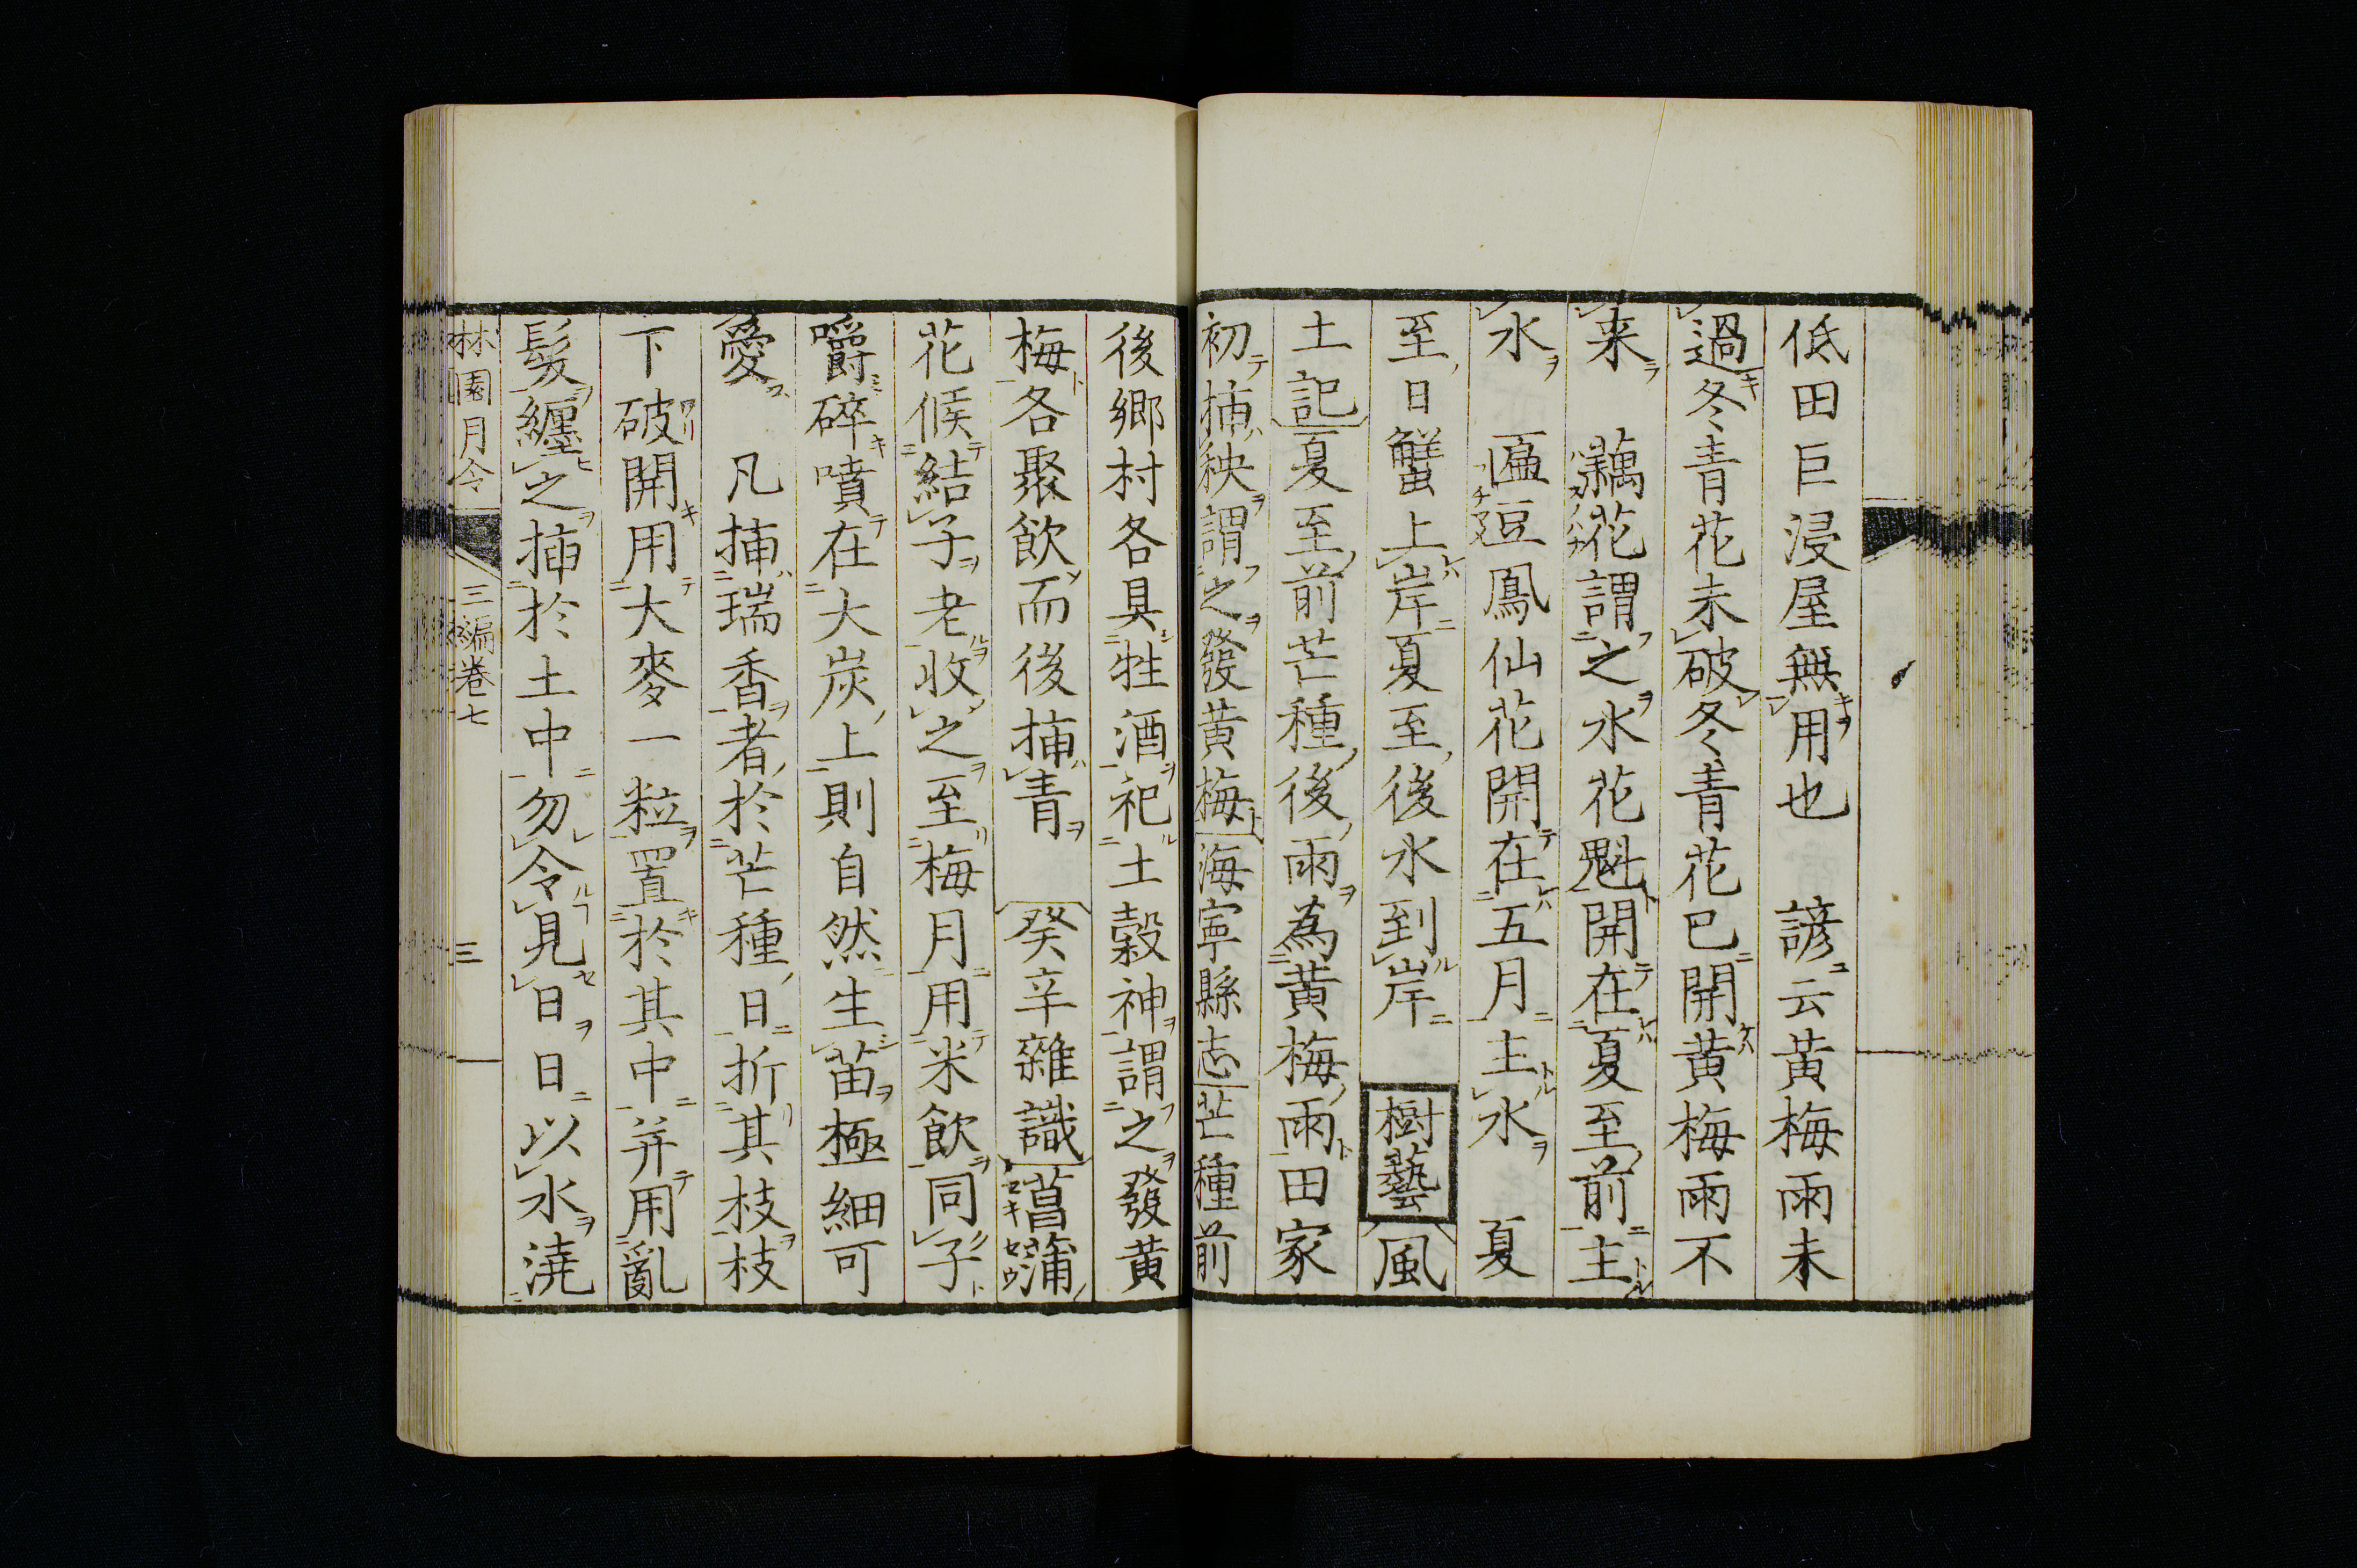 低田巨浸屋無用也　諺云黄梅雨未
過冬青花未破冬青花巳開黄梅雨不
来　藕花謂之水花魁開在夏至前主
水　匾豆鳳仙花開在五月主水　夏
至日蟹上岸夏至後水到岸　樹藝風
土記夏至前芒種後雨為黄梅雨田家
初挿秧謂之發黄梅海寧縣志芒種前
後郷村各具牲酒祀土穀神謂之發黄
梅各聚飲而後挿青　癸辛雜識菖蒲
花候結子老收之至梅月用米飲同子
嚼碎噴在大炭上則自然生苗極細可
愛　凡挿瑞香者於芒種日折其枝枝
下破開用大麥一粒置於其中并用亂
髮纏之挿於土中勿令見日日以水澆
林園月令　三編卷七　三